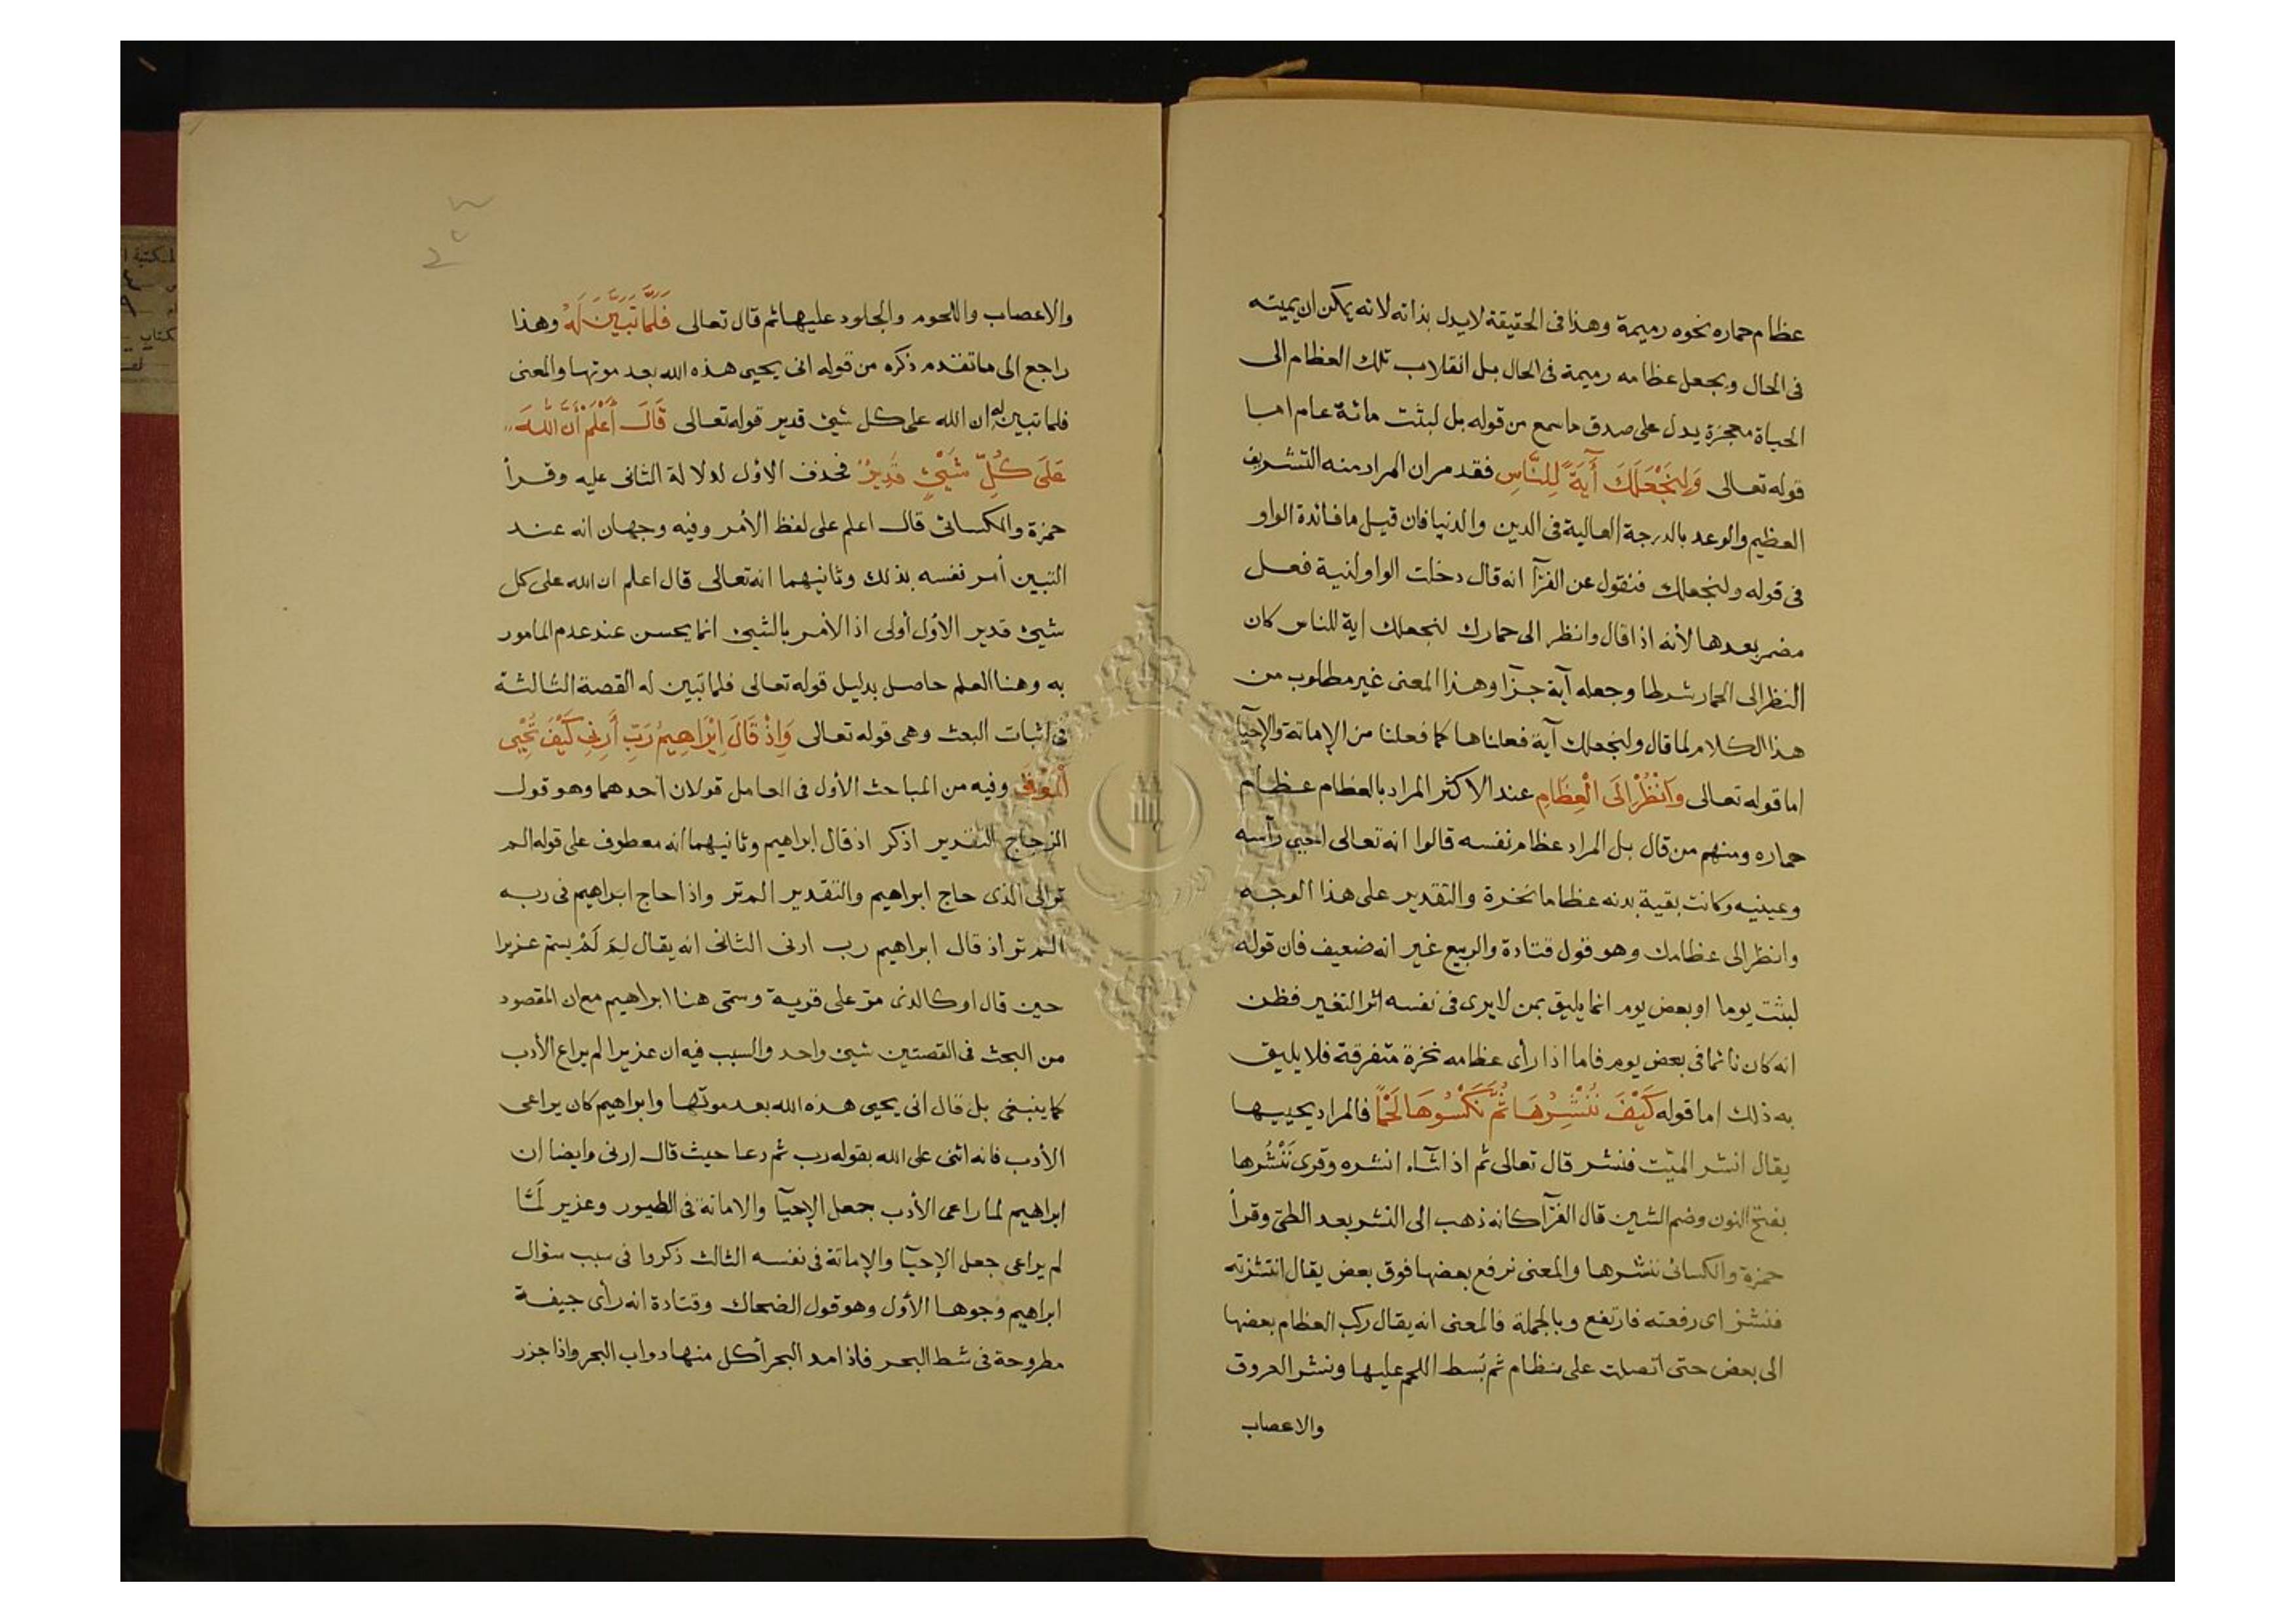 عظام حماره نخوه رميمة وهذا فى الحقيقة لا يدل بذاته لانه يمكن ان يميته
فى الحال ويجعل عظامه رميمة فى الحال بل انقلاب تلك العظام الى
الحياة معجزة يدل على صدق ما سمع من قوله بل لبثت مائة عام اما
قوله تعالى وَلِنَجْعَلَكَ آَيَةً لِلنَّاسِ فقد مر ان المراد منه التشريف
العظيم والوعد بالدرجة العالية فى الدين والدنيا فان قيل ما فائدة الواو
فى قوله ولنجعلك فنقول عن الفرّآ انه قال دخلت الواو لنية فعل
مضمر بعدها لأنه اذا قال وانظر الى حمارك لنجعلك اية للناس كان
النظر الى الحمار شرطا وجعله آية جزآ وهذا المعنى غير مطلوب من
هذا الكلام لما قال ولنجعلك آية فعلناها كما فعلنا من الإماتة والإحيآ
اما قوله تعالى وَاَنْظُرْ اِلَى الْعِظَامِ عند الاكثر المراد بالعظام عظام
حماره ومنهم من قال بل المراد عظام نفسه قالوا انه تعالى احيى رأسه
وعينيه وكانت بقية بدنه عظاما نخرة والتقدير على هذا الوجه
وانظر الى عظامك وهو قول قتادة والربيع غير انه ضعيف فان قوله
لبثت يوما او بعض يوم انما يليق بمن لا يرى فى نفسه اثر التغير فظن
انه كان نائما فى بعض يوم فاما اذا رأى عظامه نخرة متفرقة فلا يليق
به ذلك اما قوله كَيْفَ نُنْشِرُهَا ثُمَّ نَكْسُوهَا لَحْمًا فالمراد يحييها
يقال انشر الميّت فنشر قال تعالى ثم اذا شآء انشره وقرى نَنْشُرها
بفتح النون وضم الشين قال الفرّآ كانه ذهب الى النشر بعد الطىّ وقرأ
حمزة والكسائى ننشزها والمعنى نرفع بعضها فوق بعض يقال انتشزته
فنشز اى رفعته فارتفع وبالجملة فالمعنى انه يقال ركب العظام بعضها
الى بعض حتى اتصلت على نظام ثم بُسط اللحم عليها ونشر العروق
والاعصاب
والاعصاب واللحوم والجلود عليها ثم قال تعالى فَلَمَّا تَبَيَّنَ لَهُ وهذا
راجع الى ما تقدم ذكره من قوله انى يحيى هذه الله بعد موتها والمعنى
فلما تبين له ان الله على كل شئ قدير قوله تعالى قَالَ أَعْلَمُ أَنَّ اللَّهَ
عَلَى كُلِّ شَيْئٍ قَدِيرٌ فحذف الاوّل لدلالة الثانى عليه وقرأ
حمزة والكسائى قال اعلم على لفظ الأمر وفيه وجهان انه عند
التبين أمر نفسه بذلك وثانيهما انه تعالى قال اعلم ان الله على كل
شيئ قدير الأوّل أولى اذ الأمر بالشيئ انما يحسن عند عدم المامور
به وهنا العلم حاصل بدليل قوله تعالى فلما تبين له القصة الثالثة
فى اثبات البعث وهى قوله تعالى وَاِذْ قَالَ اِبْرَاهِيمُ رَبِّ أَرِنِى كَيْفَ تُحْيِى
اْلمَوْتَى وفيه من المباحث الأول فى العامل قولان احدهما وهو قول
الزجاج التقدير اذكر اذ قال ابراهيم وثانيهما انه معطوف على قوله الم
تر الى الذى حاج ابراهيم والتقدير الم تر واذا حاج ابراهيم فى ربه
الم تر اذ قال ابراهيم رب ارنى الثانى انه يقال لِمَ لَمْ يسمّ عزيرا
حين قال اوكالذى مرّ على قرية وسمّى هنا ابراهيم مع ان المقصود
من البحث فى القصتين شيئ واحد والسبب فيه ان عزيرا لم يراع الأدب
كما ينبغى بل قال انى يحيى هذه الله بعد موتها وابراهيم كان يراعى
الأدب فانه اثنى على الله بقوله رب ثم دعا حيث قال ارنى وايضا ان
ابراهيم لما راعى الأدب جعل الإحيآ والاماتة فى الطيور وعزير لَمَّا
لم يراعى جعل الإحيآ والإماتة فى نفسه الثالث ذكروا فى سبب سؤال
ابراهيم وجوها الأول وهو قول الضحاك وقتادة انه رأى جيفة
مطروحة فى شط البحر فاذا مد البحر أكل منها دواب البحر واذا جزر